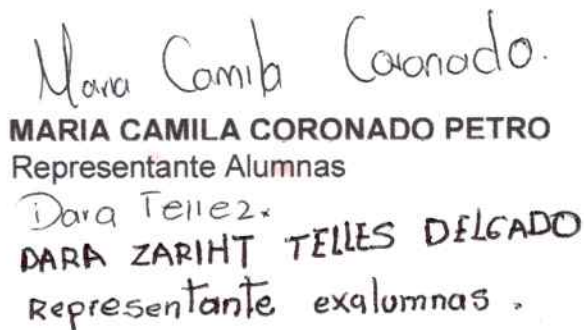 Maria Camila Coronado.
MARIA CAMILA CORONADO PETRO
Representante Alumnas
Dara Tellez.
DARA ZARIHT TELLES DELGADO
Representante exalumnas.